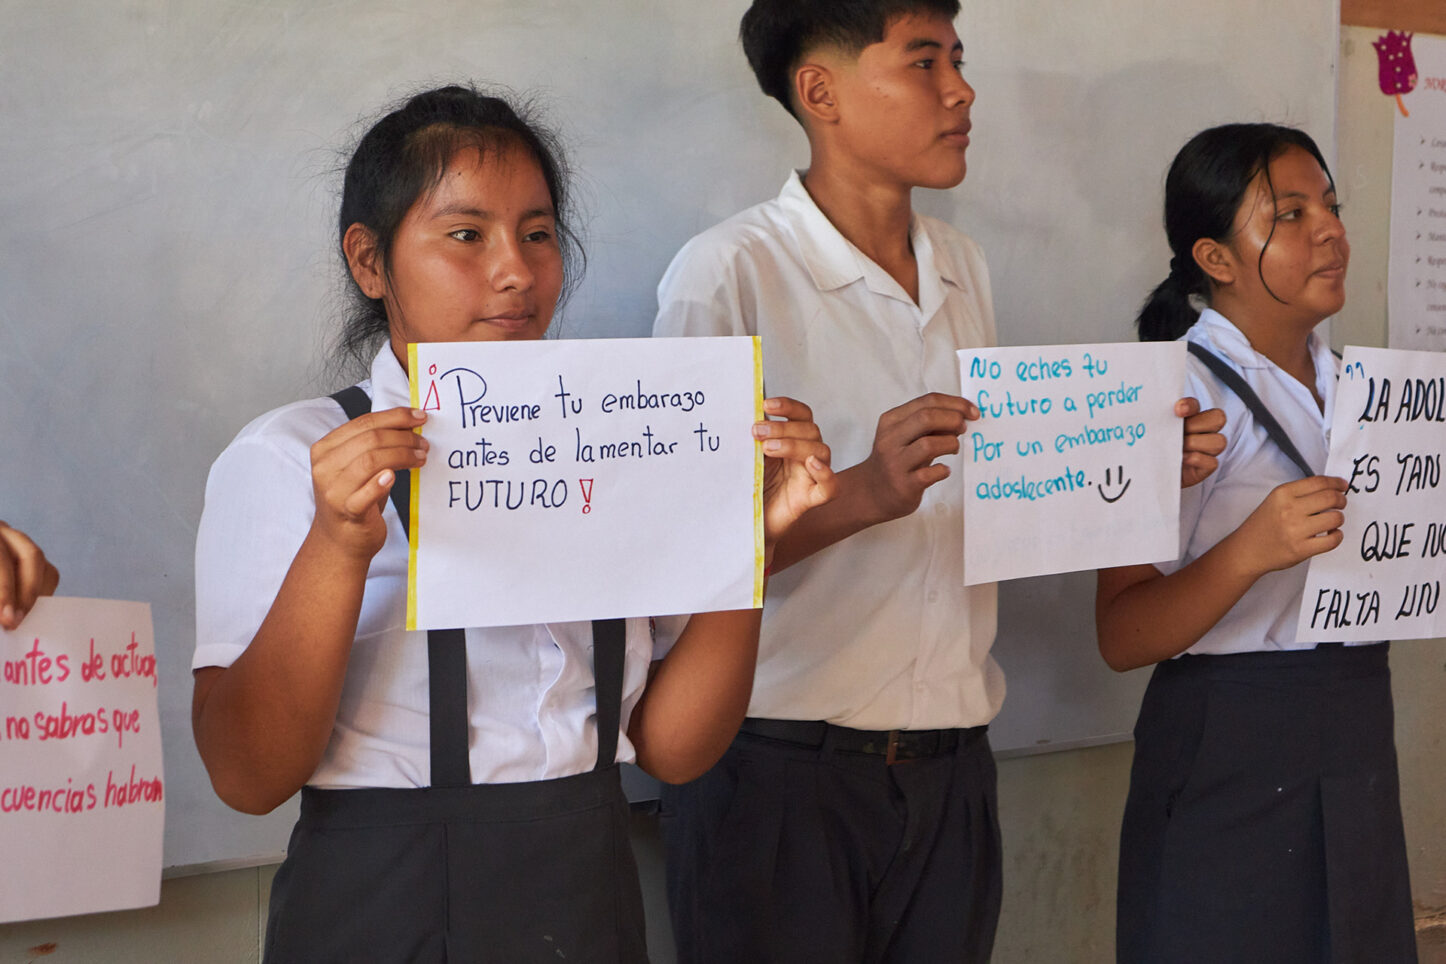 antes de actuar,
no sabras que
cuencias habran
¡Previene tu embarazo
antes de lamentar tu
FUTURO!
No eches tu
futuro a perder
Por un embarazo
adoslecente.
"LA ADOL
ES TAN
QUE NO
FALTA UN